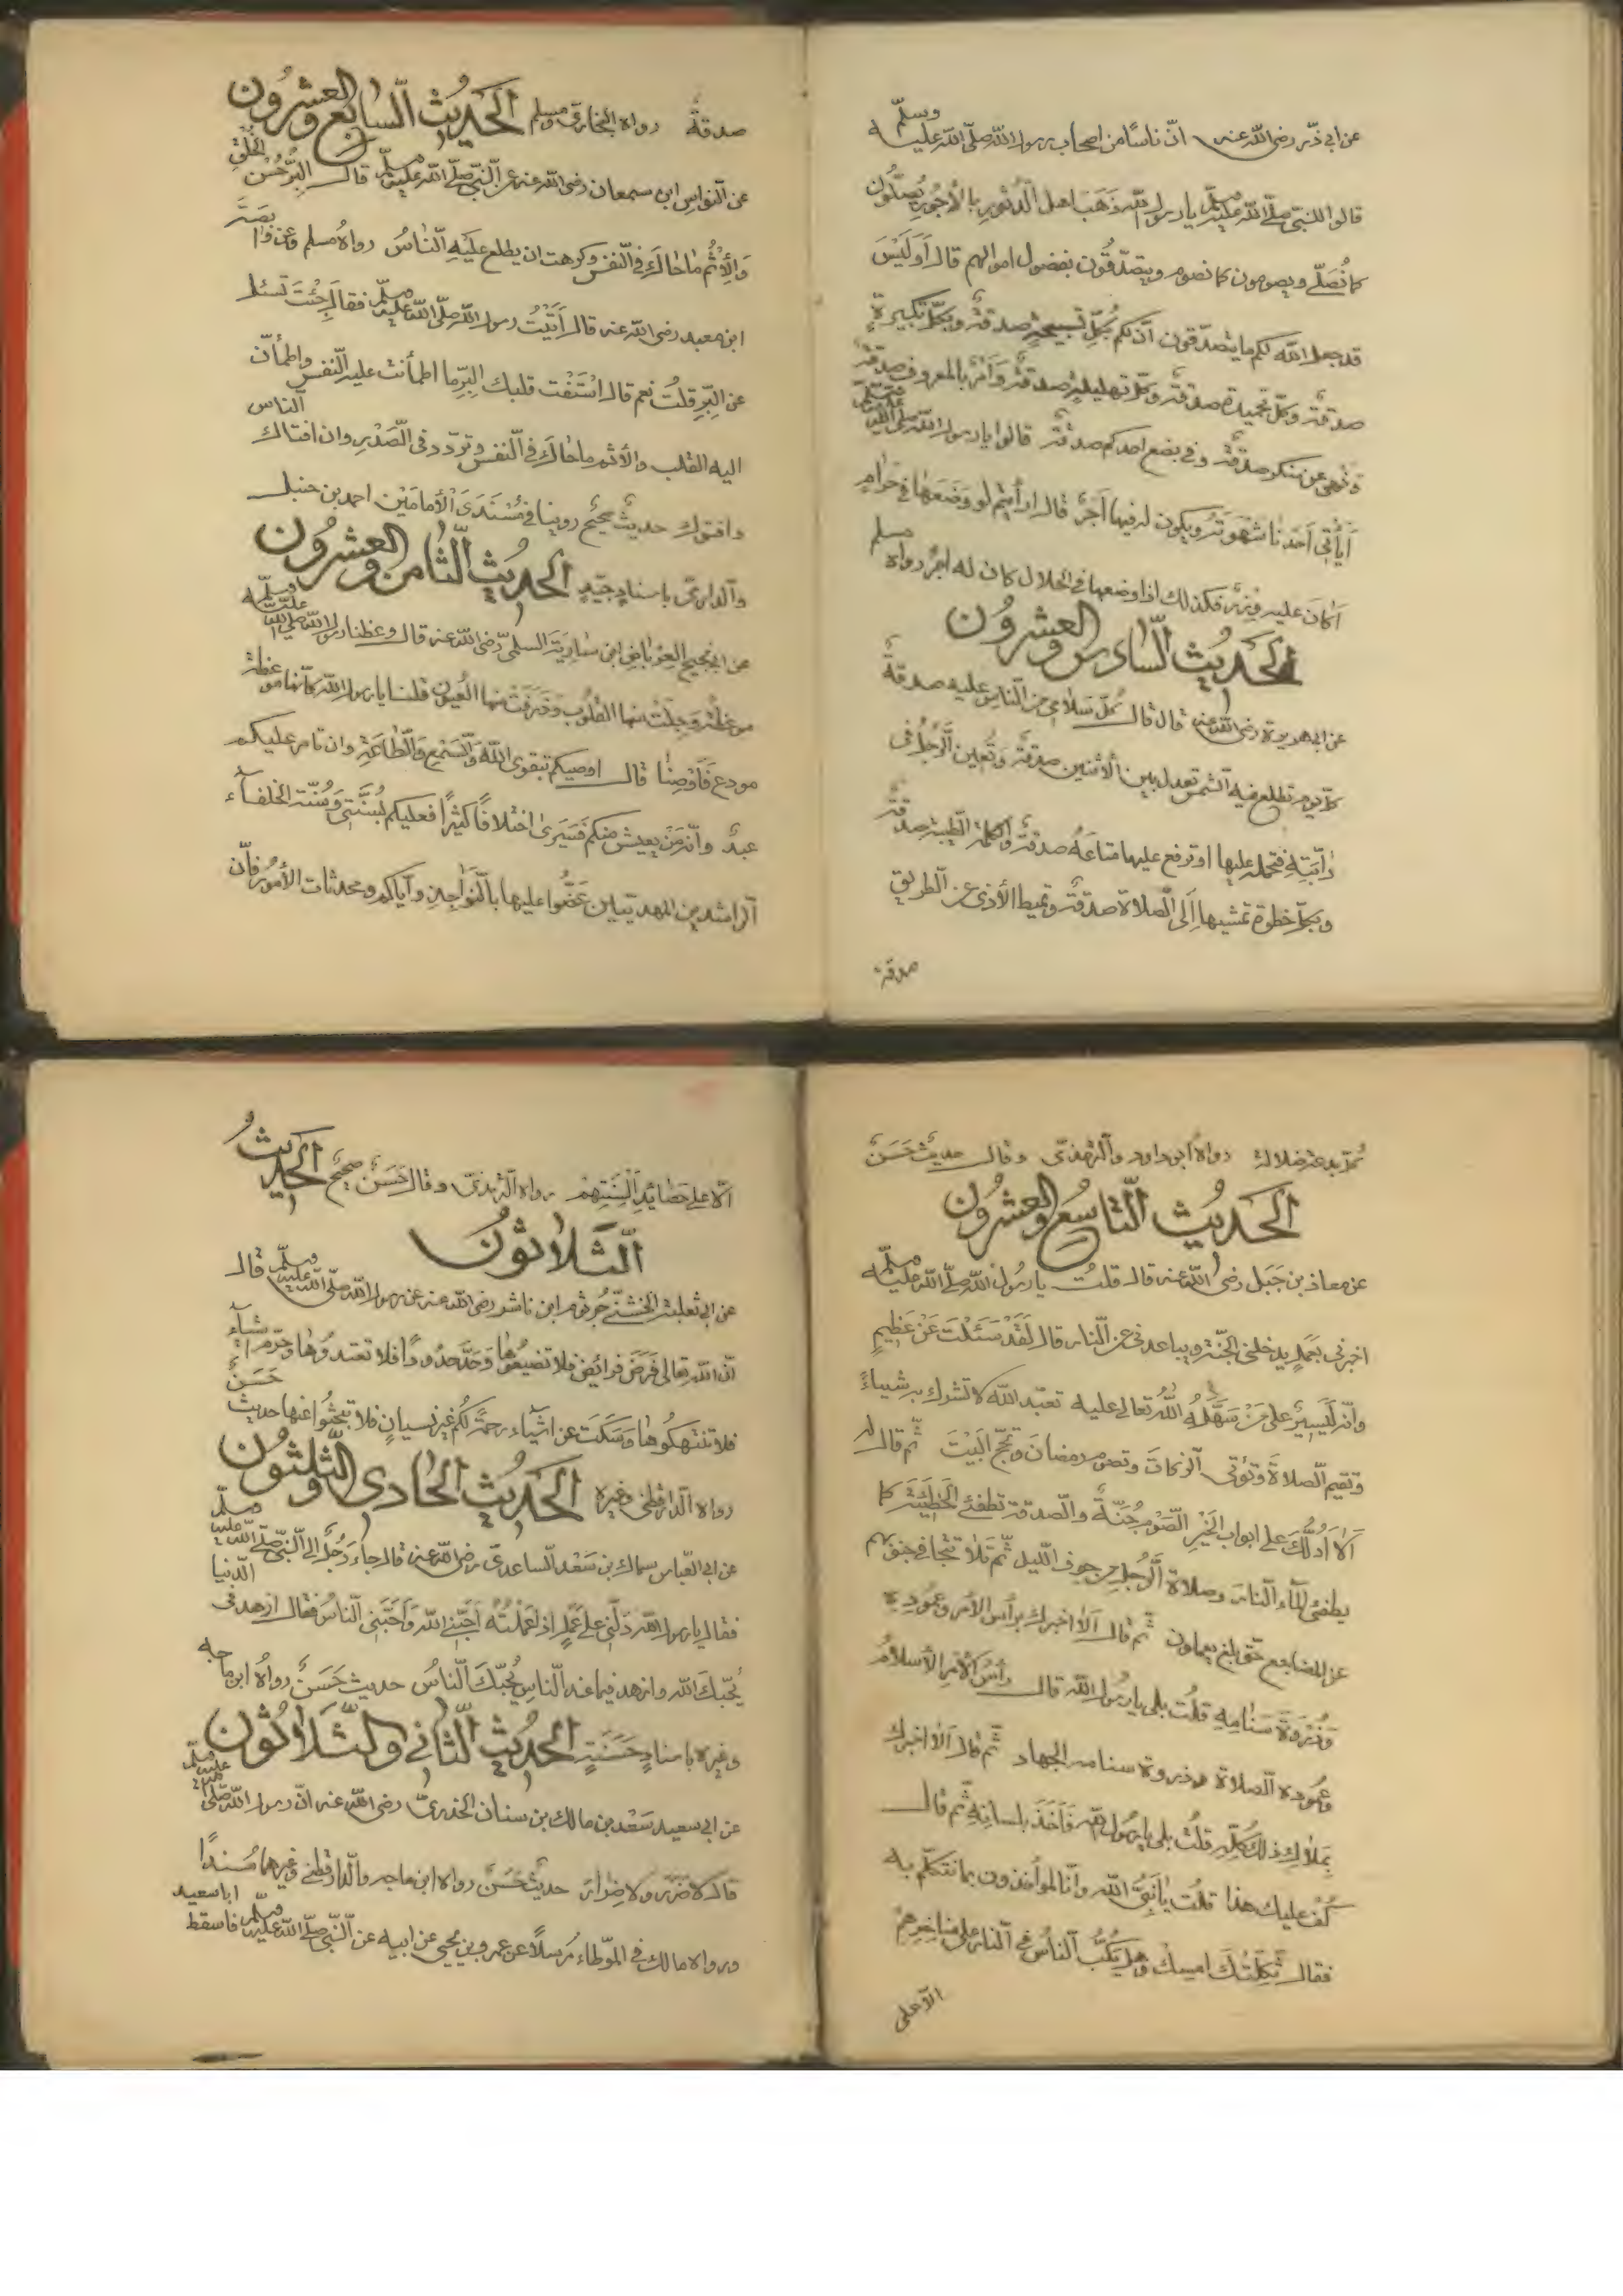 عن ابي ذّر رضى الله عنه انّ ناسًا من اصحاب رسول الله صلّى الله عليه وسلّم
قالوا للنبّي صلّى الله عليه وسلّم يا رسول الله ذَهَبَ اهل الدُّثورِ بالأجُورِ يُصَلُّون
كما نُصَلّي ويصومون كما نصوم ويتصدّقُون بفضول اموالهم قال اَوَلَيْسَ
قد جعل الله لكم ما يتصدّقون انّ لكم بُكلِّ تسبيحةٍ صدقةٌ وبكلِّ تكبيرةٍ
صدقةٌ وبكلّ تحميدة صدقةٌ وبكلّ تهليلةٍ صدقةٌ وَأمرٌ بالمعروف صدقةٌ
ونهى عن منكر صدقةٌ وفي بضع احدكم صدقةٌ قالوا يا رسول الله صلى الله عليه وسلم
أَيأتي اَحَدُنا شهوتَهُ ويكون له فيها اَجرٌ قال ارأيتم لو وَضَعَها في حَرامٍ
اَكانَ عليه وِزرٌ فكذلك اذا وضعها في الحلال كان له اجرٌ رواه مسلم
الحَدِيُث السّادس والعشرُون
عن ابي هريرة رضى الله عنه قال قال كُلّ سُلامى من النّاس عليه صدقةٌ
كلّ يوم تطلع فيه الشمس تعدل بين الأثنين صدقةٌ وتُعين الّرجُل في
دابّتِهِ فتحمله عليها او ترفع عليها متاعَهُ صدقةٌ والكلمة الطيّبة صدقةٌ
وبكلّ خطوة تمشيها اِلَى الصّلاة صدقةٌ وتميط الأذى عن الطريق
صدقة
صدقةٌ رواه البخارى ومسلم الحَدِيُث السّابع والعشرُون
عن النّواس ابن سمعان رضى الله عنه عن النّبي صلّى الله عليه وسلّم قال البِّرُ حُسْن الخُلُقِ
وَالأِثُم ما حاكَ في النّفس وكرهت ان يطلع عَليَهِ النّاسُ رواهُ مسلم وعن وابصَةَ
ابن معبد رضى الله عنه قال أَتَيْتُ رسول الله صلّى الله عليه وسلّم فقال جِئْتَ تسئل
عن البِّرِ قلتُ نعم قال اسْتَفْت قلبك البِرّ ما اطمأنت عليه النّفس واطمأنّ
اليه القلب والأثم ما حاكَ في النّفس وتردّد في الصّدرِ وان افتاك الناس
وافتوك حديثٌ صحيحٌ روينا في مُسْنَدَىَ الأمامَيْن احمد بن حنبل
والدارمىّ باسنادٍ جيّدٍ الحَدِيُث الثّامن والعشرُون
عن ابي نجيح العِرْباضِ ابن سٰارِيَة السلمىّ رّضى الله عنه قال وعظنا رسول الله صلى الله عليه وسلم
موعظةً وَجِلَتْ منها القلُوب وَذَرَفَتْ منها العُيون قلنا يا رسول الله كأنّها موعظة
مودع فَاَوْصِنٰا قال اوصيكم بتقوى الله وَالسّمْعِ وَالّطاعَةِ وان تامر عليكم
عبدٌ وانّه مَنْ يعيش منكم فَسَيَرىٰ اختلافًا كثيرًا فعليكم بُسنَّتي وَسُنّة الخلفآء
الراشدين المهديّيين عَضُّوا عليها بالنّواجِذِ وايّاكم ومحدثات الأمور فانّ
كُلّ بدعةٍ ضلالة رواهُ ابو داود والترمذىّ وقال حديثٌ حَسَنٌ
الحَدِيُث التّاسِع والعشرُون
عن معاذ بن جَبَل رضى الله عنه قال قلتُ يا رسُول الله صلّى الله عليه وسلّم
اخبرنى بَعَملٍ يدخلنى الجَنّة ويباعدنى عن النّار قال لَقَدْ سَئَلْتَ عَنْ عَظِيمٍ
وانّه لَيَسِيرٌ على مَنْ سَهَّلَهُ اللهُ تعالى عليه تعبّد الله لا تشرك به شيئاءً
وتقيم الصّلاةَ وتؤتى الزكاتَ وتصوم رمضانَ وتَحُجّ البَيْتَ ثُم قال له
اَلا اَدُلُّكَ على ابواب الخَيْرِ الصّوْمُ جُنّةٌ والصّدقة تطفئُ الخَطِيئةَ كما
يطفئُ المآء النّارَ وصلاة الّرجُلِ من جوف اللّيل ثُمّ تلا تتجافى جنوبهم
عن المضاجع حتّى بلغ يعملون ثُمّ قال اَلا اخبرك برأس الأمر وعمُودِهِ
وَذُرْوَةِ سَنامِهِ قلُت بلى يا رسُول الله قال رأسُ الأمرِ الأسلامُ
وعمُوده الصّلاة وذروة سنامه الجهاد ثُمّ قال اَلا اخبرك
بَمِلاكِ ذلك كُلِّهِ قلتُ بلى يا رسُول الله فَاَخَذَ بلسانِهِ ثُم قال
كُفّ عليك هذا قلُت يا نَبِىَّ الله وانّا لمؤاخذون بما نتكلّم به
فقال ثَكِلَتْكَ امّك وهل يَكُبُّ النّاسُ في النّار على مناخِرِهِمْ
الّا على
الّا على حَصائِدِ اَلْسِنَتِهِمْ رواه الترمذىّ وقال حَسَنٌ صحيحٌ الحَدِيثُ
الثّلاثوُنَ
عن ابي ثعلبة الخشنىّ جُرثُوم ابن ناشر رضى الله عنه عن رسول الله صلّى الله عليه وسلّم قال
انّ الله تعالى فَرَضَ فرائِضَ فلا تضيعُوها وَحَدَّ حُدُودًا فلا تعتدوُها وحَرّم اشيآءٍ
فلا تنتهكُوها وَسَكَتَ عن اشيآء رحمةً لكُم غير نسيانٍ فلا تبحثُوا عنها حديث حَسَنٌ
رواه الدارقطنى وغيره الحَدِيُث الحادى والثّلثُون
عن ابي العّباس سهل بن سَعْد الساعدىّ رضى الله عنه قال جاءَ رَجُلٌ إلى النّبي صلّى الله عليه وسلّم
فقال يا رسول الله دلّني على عَمَلٍ اذا عَمِلْتُهُ اَحَبَّنِى الله وَاَحَبَّنِى النّاسُ فقال ازهد فى الدّنيا
يُحّبك الله وازهد فيما عند النّاسِ يُحبّكَ النّاسُ حديث حَسَنٌ رواهُ ابن ماجه
وغيره باسنادٍ حَسَنَةٍ الحَدِيث الثّاني والثّلاثُون
عن ابي سعيد سَعْد بن مالك بن سنان الخدرىّ رضى الله عنه انّ رسول الله صلّى الله عليه وسلّم
قال لا ضرَرَ ولا ضِرارَ حديثٌ حَسَنٌ رواه ابن ماجه والدارقطنى وغيرهما مُسْندًا
ورواه مالك في الموّطاء مُرْسلًا عن عمرو بن يحيى عن ابيه عن النّبي صلّى الله عليه وسلّم فاسقط ابا سعيد